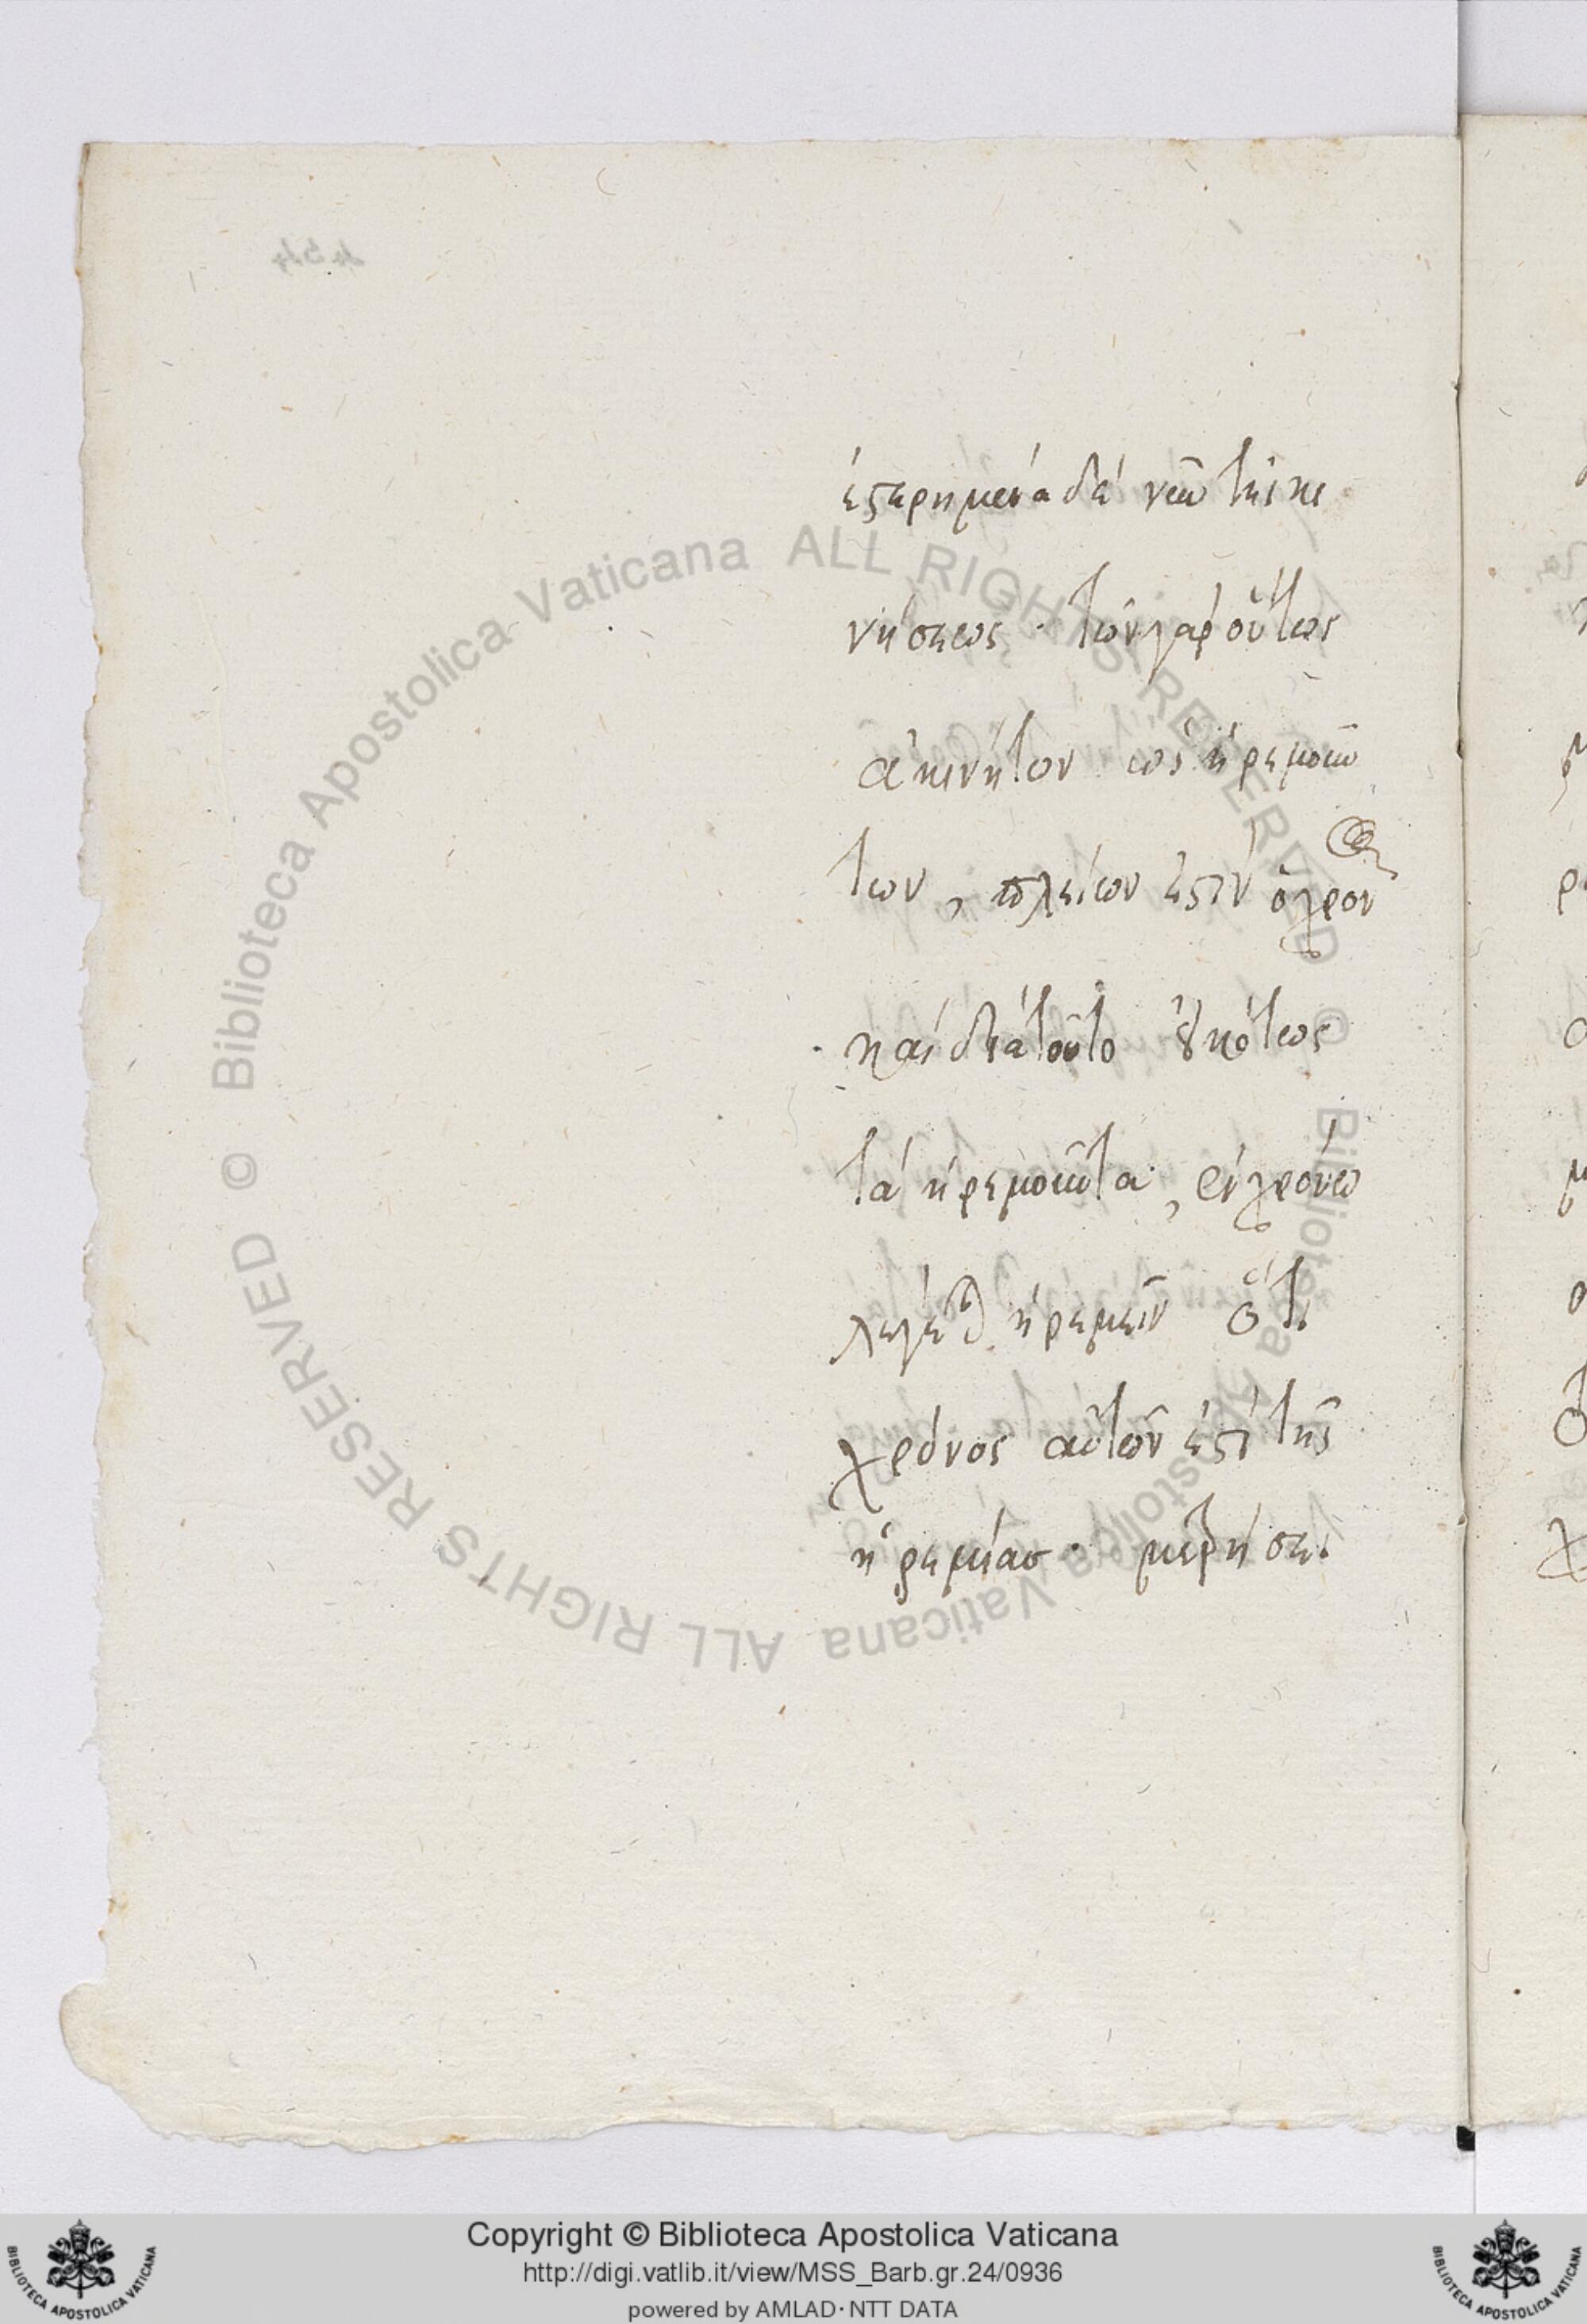 ἐστερημένα δὲ νῦν τῆς κι
νήσεως · τῶν γὰρ οὕτως
ἀκινήτων ὡς ἠρεμούν
των, πλείων ἐστὶν ὁ χρόν
καὶ διὰ τοῦτο εἰκότως
τὰ ἠρεμοῦντα, ἐν χρόνω
λέγεται ἠρεμεῖν ὅτι
χρόνος αὐτῶν ἐστι τῆς
ἠρεμίας · μετρήσει
Biblioteca Apostolica Vaticana ALL RIGHTS RESERVED ©
Biblioteca Apostolica Vaticana ALL RIGHTS RESERVED ©
Copyright © Biblioteca Apostolica Vaticana
http://digi.vatlib.it/view/MSS_Barb.gr.24/0936
powered by AMLAD · NTT DATA
BIBLIOTECA APOSTOLICA VATICANA
BIBLIOTECA APOSTOLICA VATICANA